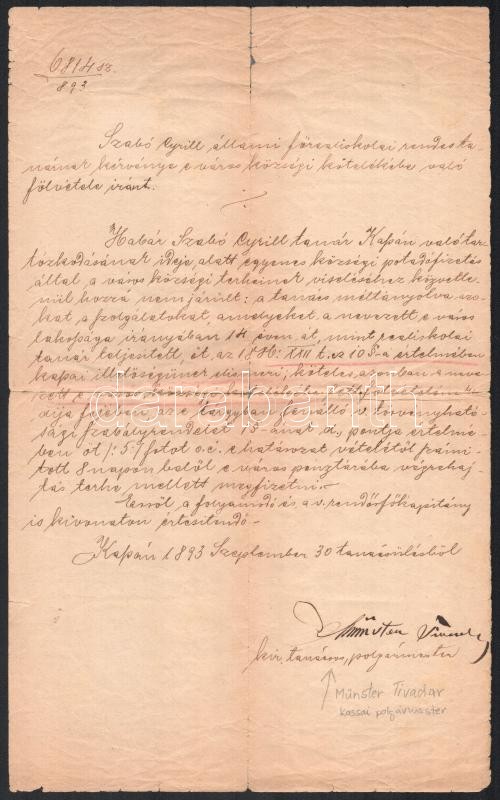 6814 sz.
893
Szabó Cyrill, állami főreáliskolai rendes ta-
nárnak kérvénye e város községi kötelékébe való
fölvétele iránt.
Habár Szabó Cyrill tanár Kassán való tar-
tózkodásának ideje alatt egyenes községi pótadófizetés
által a város községi terheinek viseléséhez közvetle-
nül hozzá nem járult: a tanács méltányolva azo-
kat a szolgálatokat, amelyeket a nevezett e város
lakossága irányában 14 éven át, mint reáliskolai
tanár teljesített, őt az 1886: XXII t. cz 10 §-a értelmében
kassai illetőségűnek elismeri; köteles azonban a neve-
zett e város községi kötelékébe lett fölvételének
díja fejében, az e tárgyban fennálló törvényható-
sági szabályrendelet 15-ének d., pontja értelmé-
ben öt /:5:/ frtot o. é. e határozat vételétől számí-
tott 8 napon belől e város pénztárába végrehaj-
tás terhe mellett megfizetni.-
Erről a folyamodó és a v. rendőrfőkapitány
is kivonaton értesítendő.-
Kassán 1893 Szeptember 30 tanácsülésből
Münster Tivadar
kir. tanácsos, polgármester
Münster Tivadar
kassai polgármester
darabanth.com